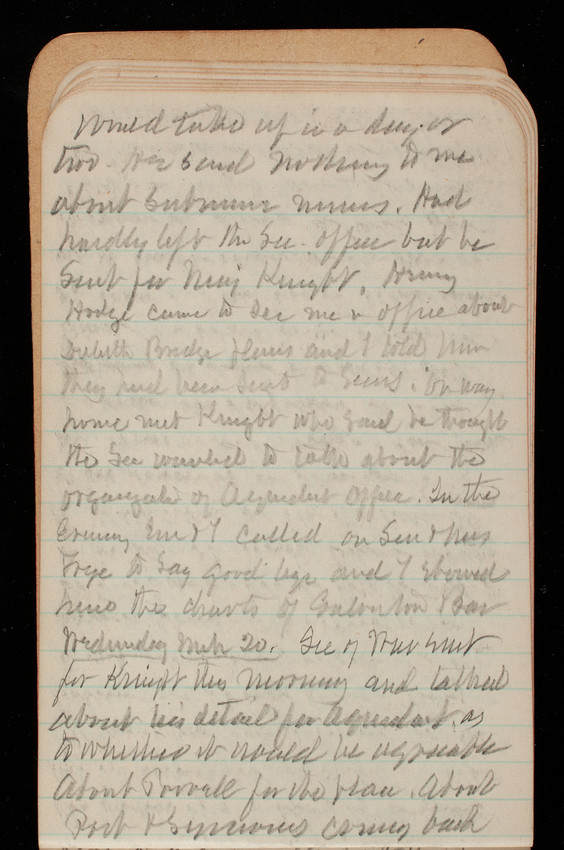 Would talk up in a day or
two. He said nothing to me
about submarine mines. Had
hardly left the Sec. office but he
sent for Maj Knight. Henry
Hodge came to see me in office about
Duluth Bridge plans and I told him
they had been sent to Sears. On way
home met Knight who said he thought
the Sec wanted to talk about the
of Aqueduct office. In the
Evening Em & I called on Sen & Mrs
Frye to say good bye and I showed
him the charts of Galveston Bar
Wednesday Mch 20. Sec of War sent
for Knight this morning and talked
about his detail for Aqueduct. as
to whether it would be agreeable
About Powell for the place. About
Post & Symmons coming back